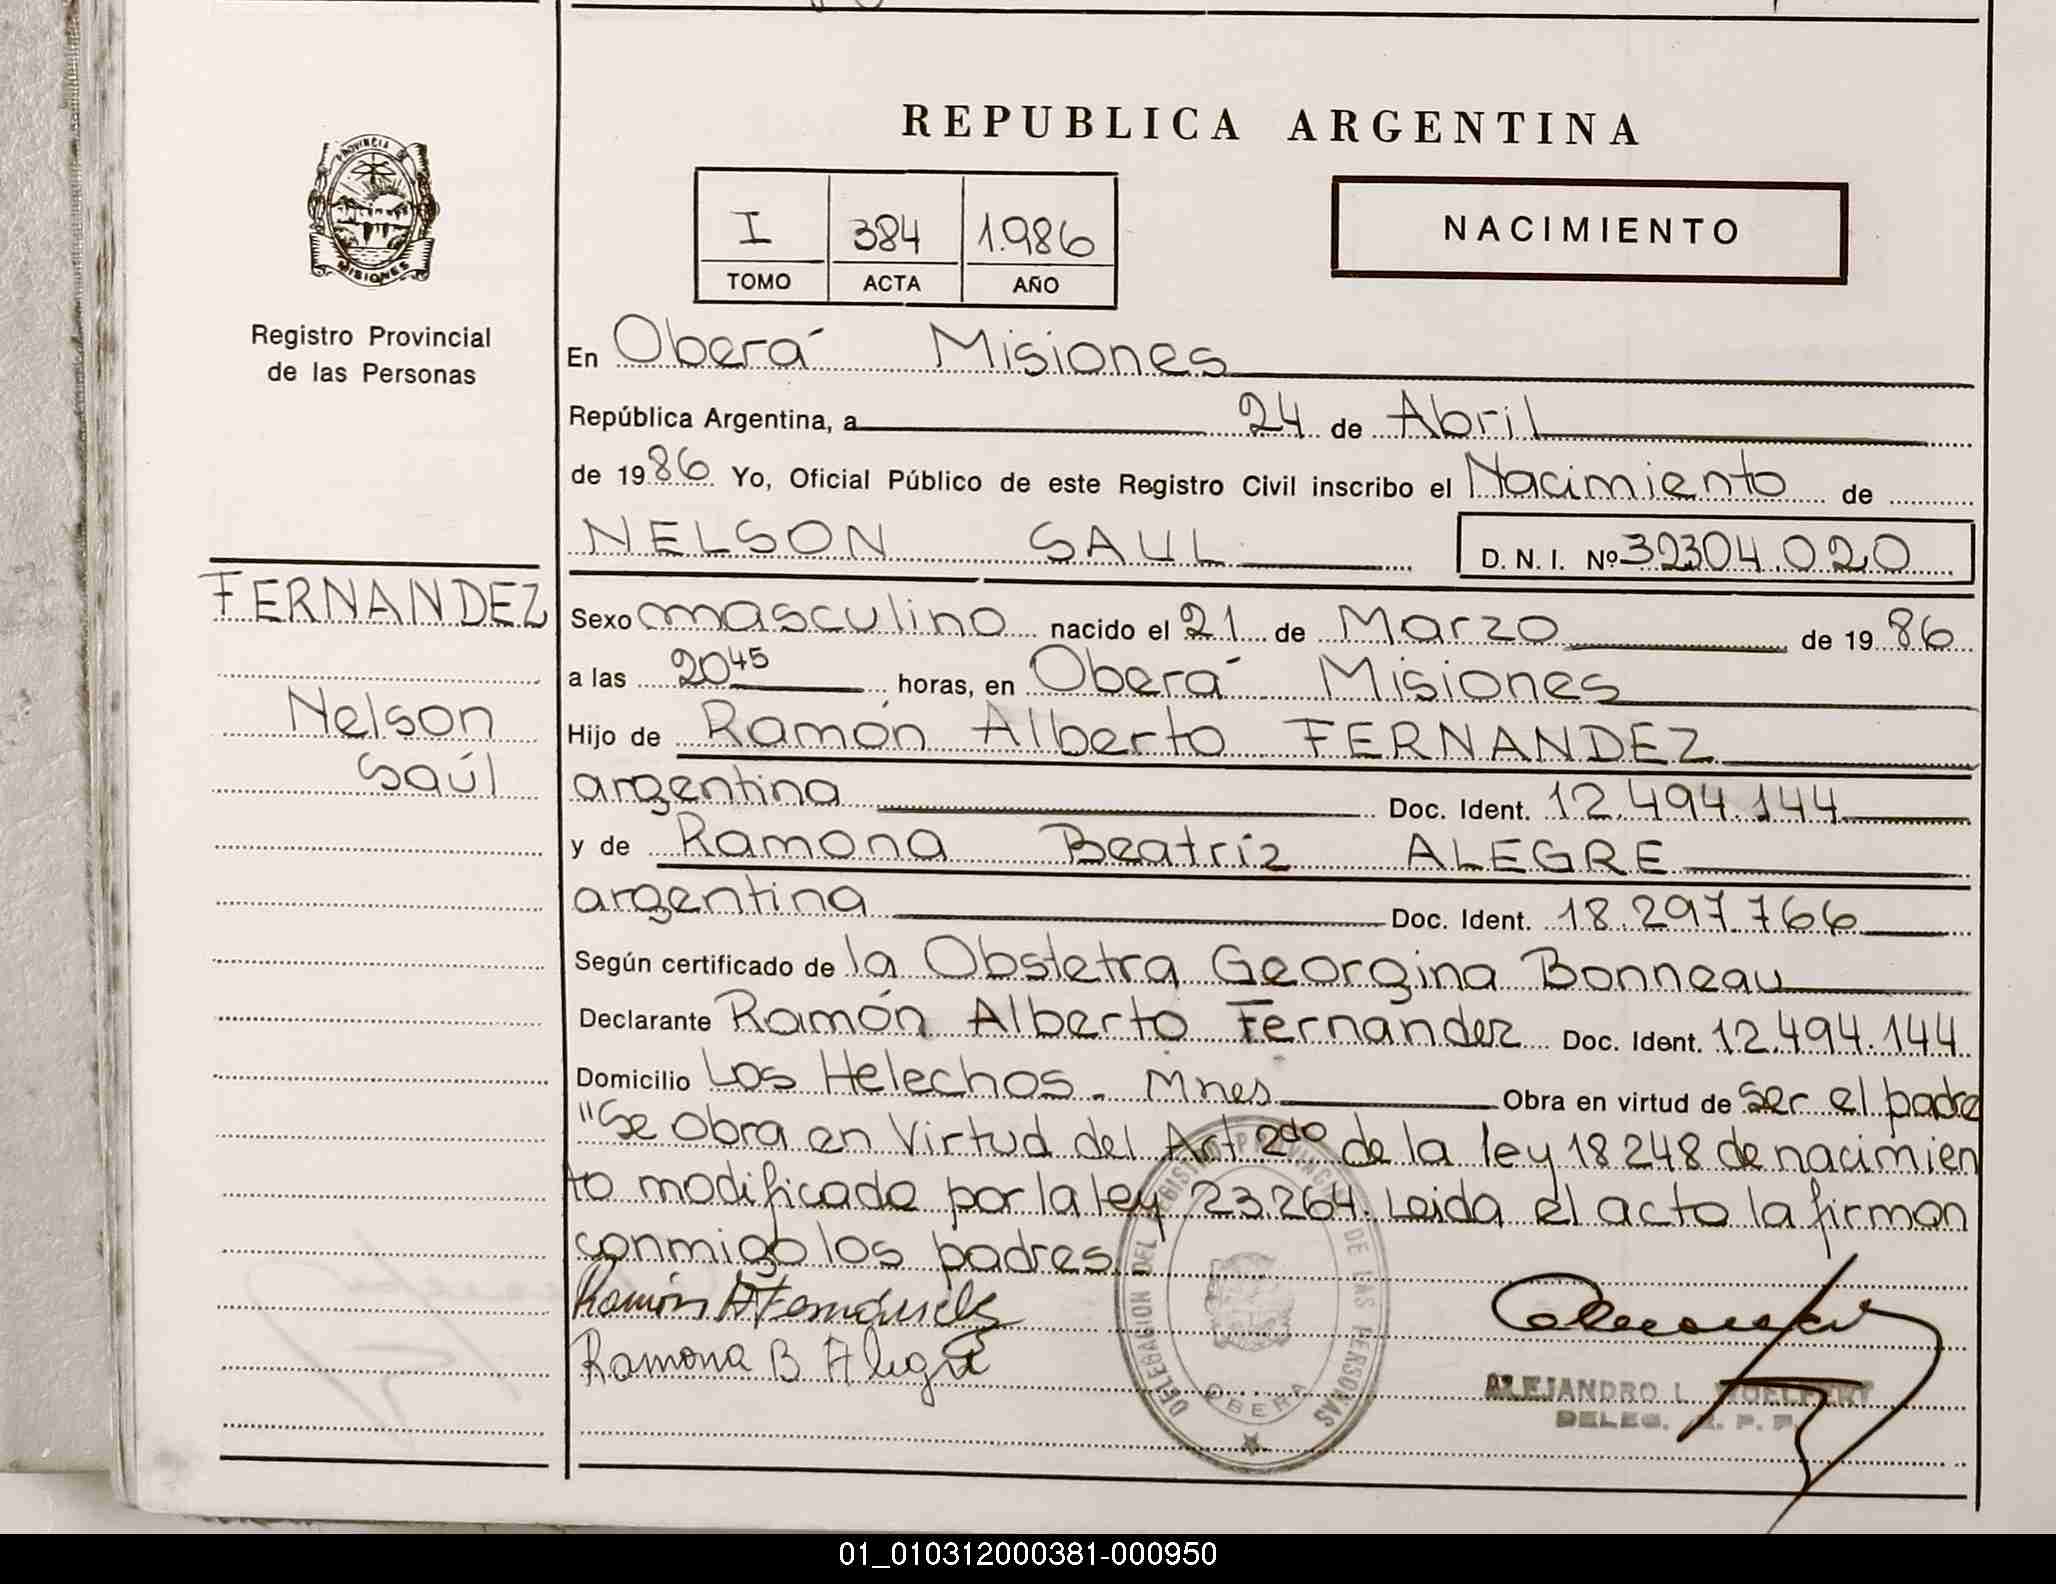 REPUBLICA ARGENTINA
PROVINCIA DE
MISIONES
Registro Provincial
de las Personas
I 384 1.986
TOMO ACTA AÑO
NACIMIENTO
En Oberá Misiones
República Argentina, a 24 de Abril
de 1986 Yo, Oficial Público de este Registro Civil inscribo el Nacimiento de
NELSON SAUL D. N. I. Nº 32304.020
FERNANDEZ
Nelson
Saúl
Sexo masculino nacido el 21 de Marzo de 1986
a las 20 45 horas, en Oberá Misiones
Hijo de Ramón Alberto FERNANDEZ
argentina Doc. Ident. 12.494.144
y de Ramona Beatríz ALEGRE
argentina Doc. Ident. 18.297.766
Según certificado de la Obstetra Georgina Bonneau
Declarante Ramón Alberto Fernandez Doc. Ident. 12.494.144
Domicilio Los Helechos. Mnes Obra en virtud de ser el padre
"Se Obra en Virtud del Art 2do de la ley 18248 de nacimien
to modificado por la ley 23.264. Leida el acto la firman
conmigo los padres.
Ramón A Fernández
Ramona B Alegre
DELEGACION DEL REGISTRO PROVINCIAL DE LAS PERSONAS
OBERA
ALEJANDRO L.
DELEG. R. P. P.
01_010312000381-000950